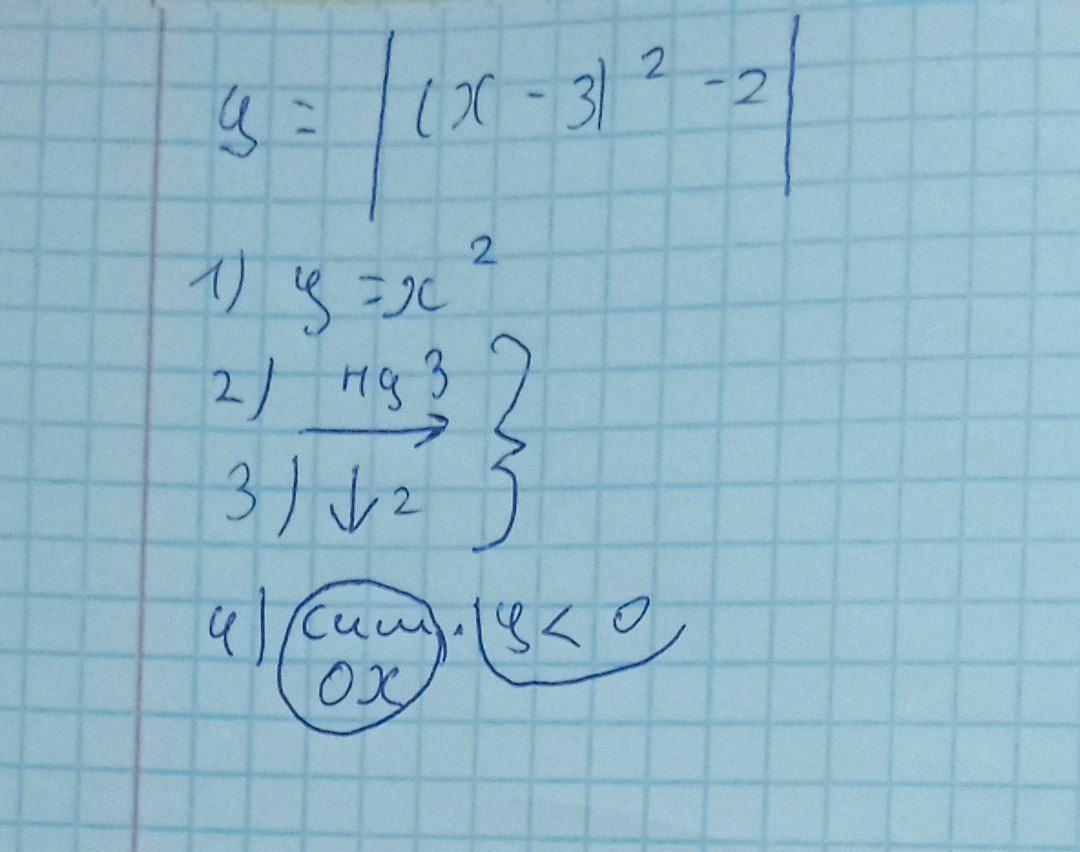 y = |(x - 3)² - 2|
1) y = x²
2) на 3
3) ↓ 2
4) сим. y < 0
OX